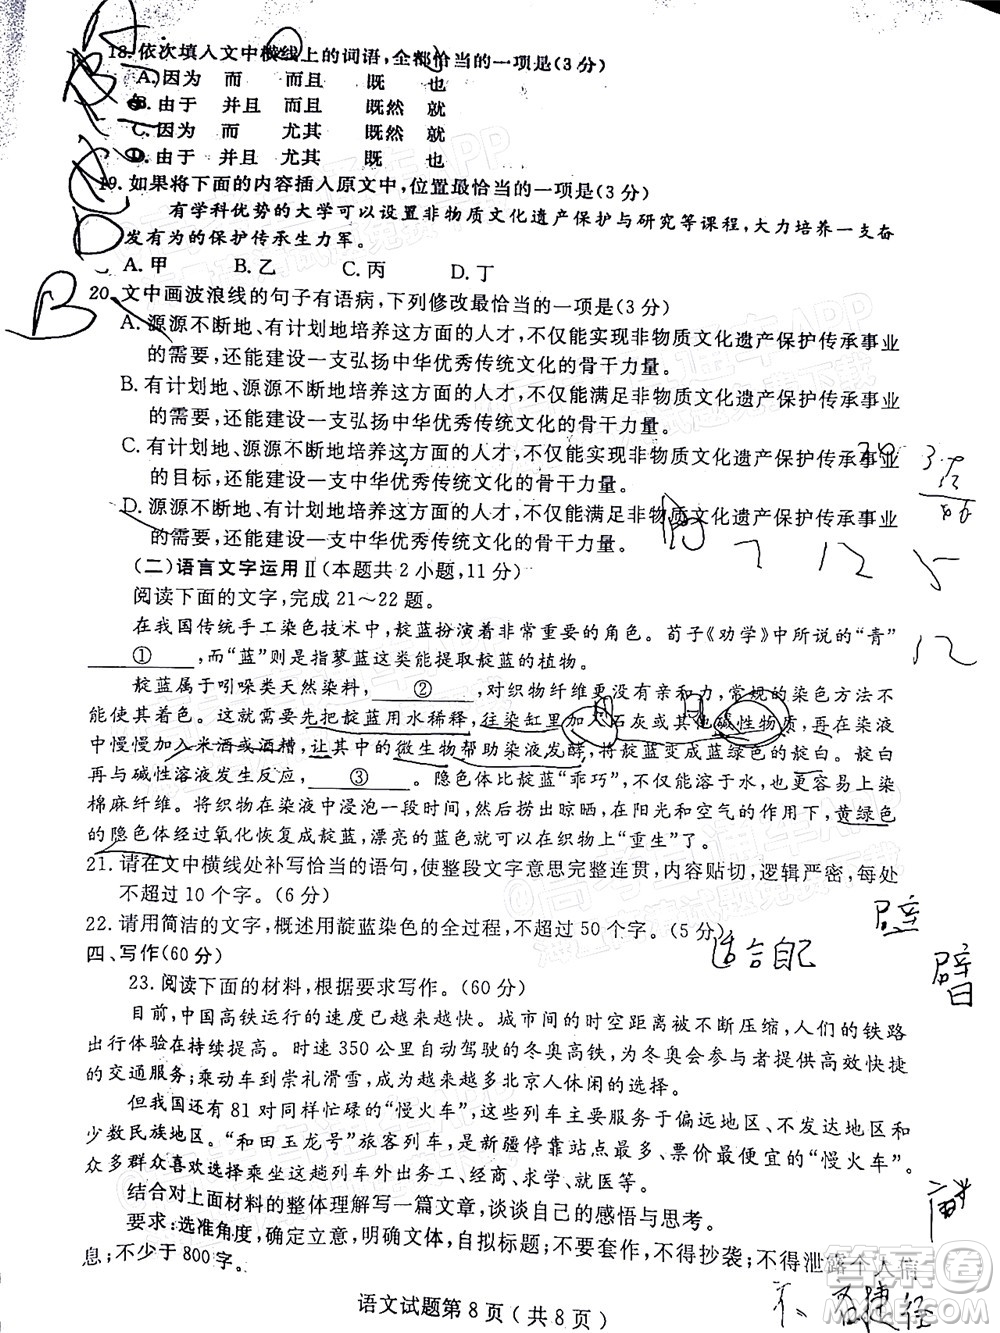 18. 依次填入文中横线上的词语,全都恰当的一项是(3分)
A. 因为 而 而且 既 也
B. 由于 并且 而且 既然 就
C. 因为 而 尤其 既然 就
D. 由于 并且 尤其 既 也
19. 如果将下面的内容插入原文中,位置最恰当的一项是(3分)
有学科优势的大学可以设置非物质文化遗产保护与研究等课程,大力培养一支奋
发有为的保护传承生力军。
A. 甲 B. 乙 C. 丙 D. 丁
B
20. 文中画波浪线的句子有语病,下列修改最恰当的一项是(3分)
A. 源源不断地、有计划地培养这方面的人才,不仅能实现非物质文化遗产保护传承事业
的需要,还能建设一支弘扬中华优秀传统文化的骨干力量。
B. 有计划地、源源不断地培养这方面的人才,不仅能满足非物质文化遗产保护传承事业
的需要,还能建设一支弘扬中华优秀传统文化的骨干力量。
C. 有计划地、源源不断地培养这方面的人才,不仅能实现非物质文化遗产保护传承事业
的目标,还能建设一支弘扬中华优秀传统文化的骨干力量。
D. 源源不断地、有计划地培养这方面的人才,不仅能满足非物质文化遗产保护传承事业
的需要,还能建设一支中华优秀传统文化的骨干力量。
(二)语言文字运用Ⅱ(本题共2小题,11分)
阅读下面的文字,完成21～22题。
在我国传统手工染色技术中,靛蓝扮演着非常重要的角色。荀子《劝学》中所说的“青”
①,而“蓝”则是指蓼蓝这类能提取靛蓝的植物。
靛蓝属于吲哚类天然染料,②,对织物纤维更没有亲和力,常规的染色方法不
能使其着色。这就需要先把靛蓝用水稀释,往染缸里加入石灰或其他碱性物质,再在染液
中慢慢加入米酒或酒糟,让其中的微生物帮助染液发酵,将靛蓝变成蓝绿色的靛白。靛白
再与碱性溶液发生反应,③。隐色体比靛蓝“乖巧”,不仅能溶于水,也更容易上染
棉麻纤维。将织物在染液中浸泡一段时间,然后捞出晾晒,在阳光和空气的作用下,黄绿色
的隐色体经过氧化恢复成靛蓝,漂亮的蓝色就可以在织物上“重生”了。
21. 请在文中横线处补写恰当的语句,使整段文字意思完整连贯,内容贴切,逻辑严密,每处
不超过10个字。(6分)
22. 请用简洁的文字,概述用靛蓝染色的全过程,不超过50个字。(5分)
适合自己
壁
四、写作(60分)
23. 阅读下面的材料,根据要求写作。(60分)
目前,中国高铁运行的速度已越来越快。城市间的时空距离被不断压缩,人们的铁路
出行体验在持续提高。时速350公里自动驾驶的冬奥高铁,为冬奥会参与者提供高效快捷
的交通服务;乘动车到崇礼滑雪,成为越来越多北京人休闲的选择。
但我国还有81对同样忙碌的“慢火车”,这些列车多分布于偏远地区、不发达地区和
少数民族地区。“和田玉龙号”旅客列车,是新疆停靠站点最多、票价最便宜的“慢火车”,
众多群众喜欢选择乘坐这趟列车外出务工、经商、求学、就医等。
结合对上面材料的整体理解写一篇文章,谈谈自己的感悟与思考。
要求:选准角度,确定立意,明确文体,自拟标题;不要套作,不得抄袭;不得泄露个人信
息;不少于800字。
语文试题第8页(共8页)
答案圈
MXQE.COM